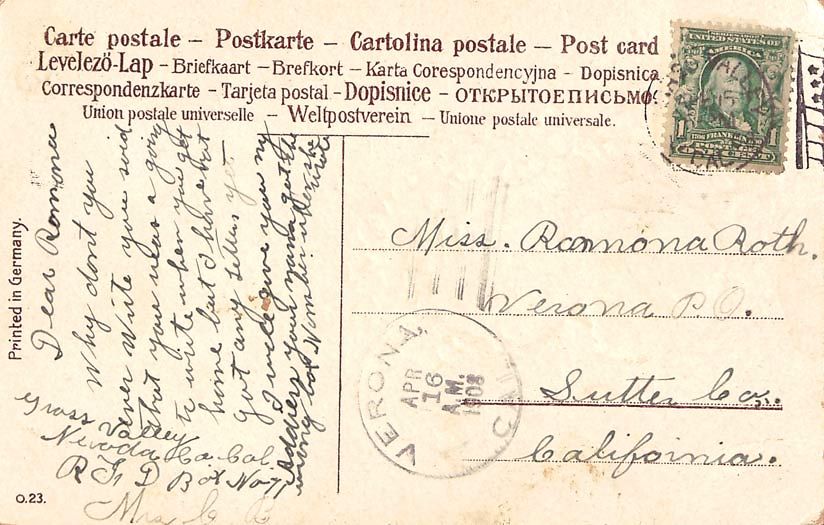 Carte postale – Postkarte – Cartolina postale – Post card
Levelező-Lap – Briefkaart – Brefkort – Karta Corespondencyjna – Dopisnica
Correspondenzkarte – Tarjeta postal – Dopisnice – ОТКРЫТОЕПИСЬМО.
Union postale universelle – Weltpostverein – Unione postale universale.
UNITED STATES OF
AMERICA
FRANKLIN
1
1
Miss. Ramona Roth.
Verona P.O.
Sutter Co.
California.
VERONA,
APR
16
A.M.
1908
Printed in Germany.
Dear Ramona
Why dont you
ever write you said
that you was a going
to write when you get
home but I have but
got any letters yet
I will give you my
address you
wrong box Number
Grass Valley
Nevada Co. Cal.
R F D Box No 71
Mrs C B
O.23.